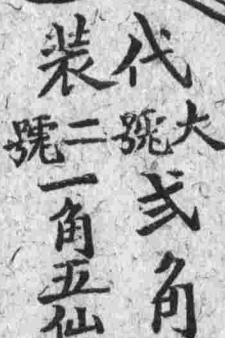 代裝
大號弍角
二號一角五仙